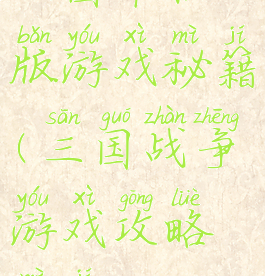 bǎn yóu xì mì jí
版游戏秘籍
sān guó zhàn zhēng
(三国战争
yóu xì gōng lüè
游戏攻略